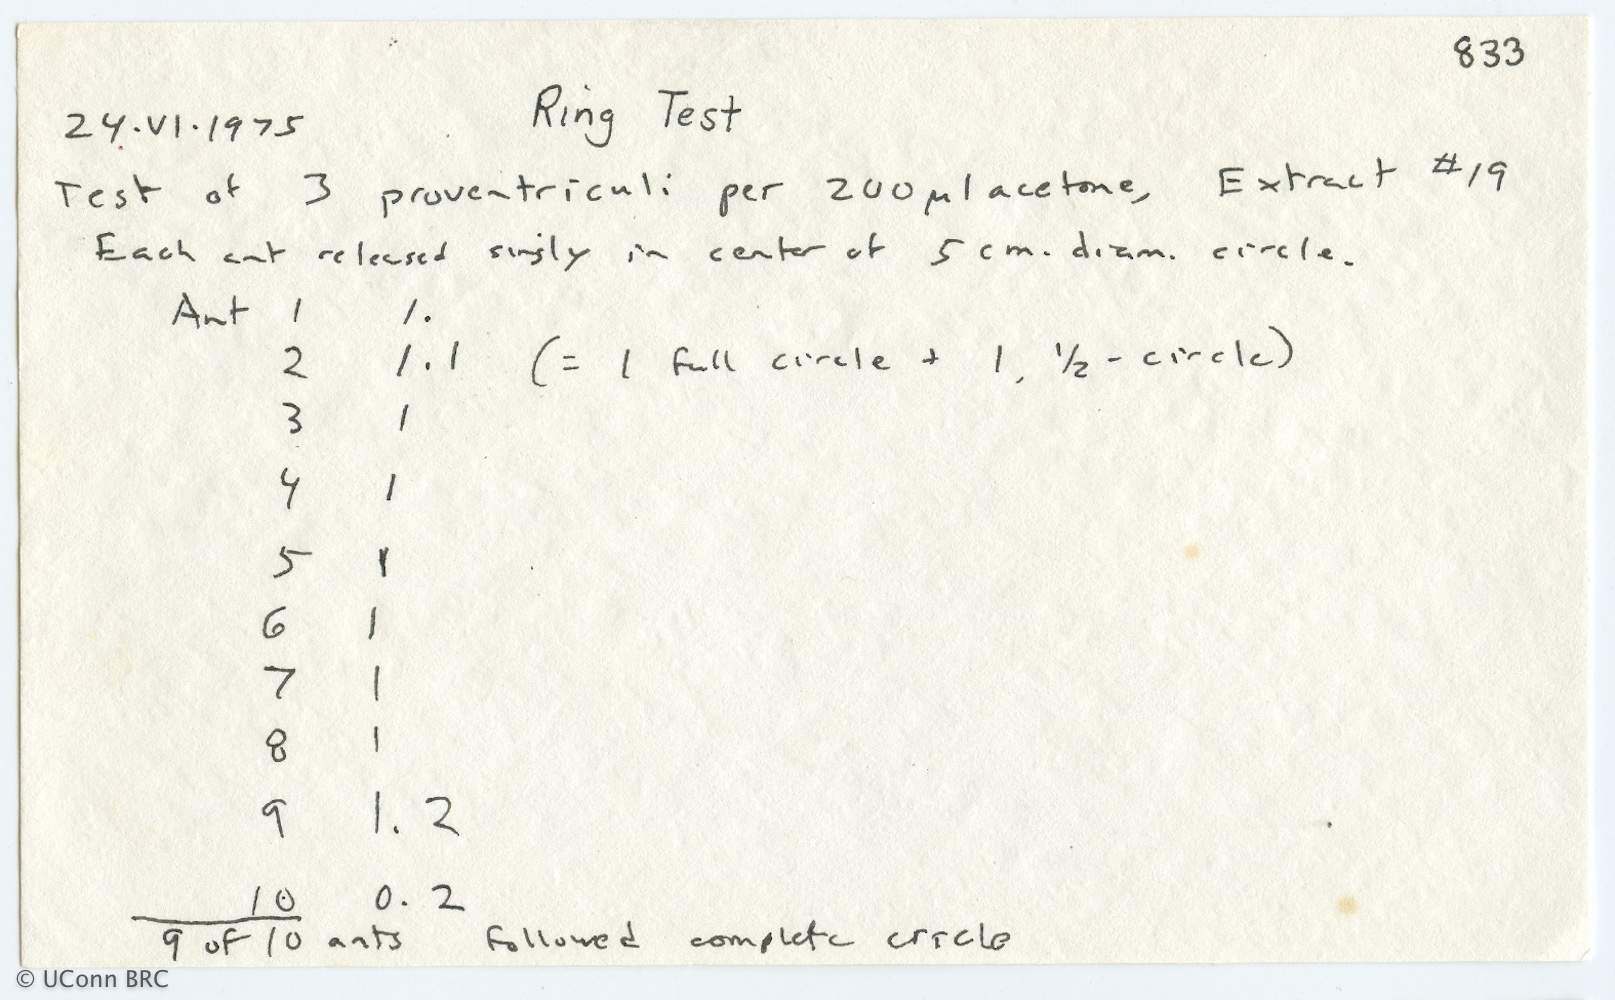 833
Ring Test
24.VI.1975
Test of 3 proventriculi per 200 µl acetone, Extract #19
Each ant released singly in center of 5 cm. diam. circle.
Ant 1 1.
2 1.1 (= 1 full circle + 1, 1/2-circle)
3 1
4 1
5 1
6 1
7 1
8 1
9 1.2
10 0.2
9 of 10 ants followed complete circle
© UConn BRC